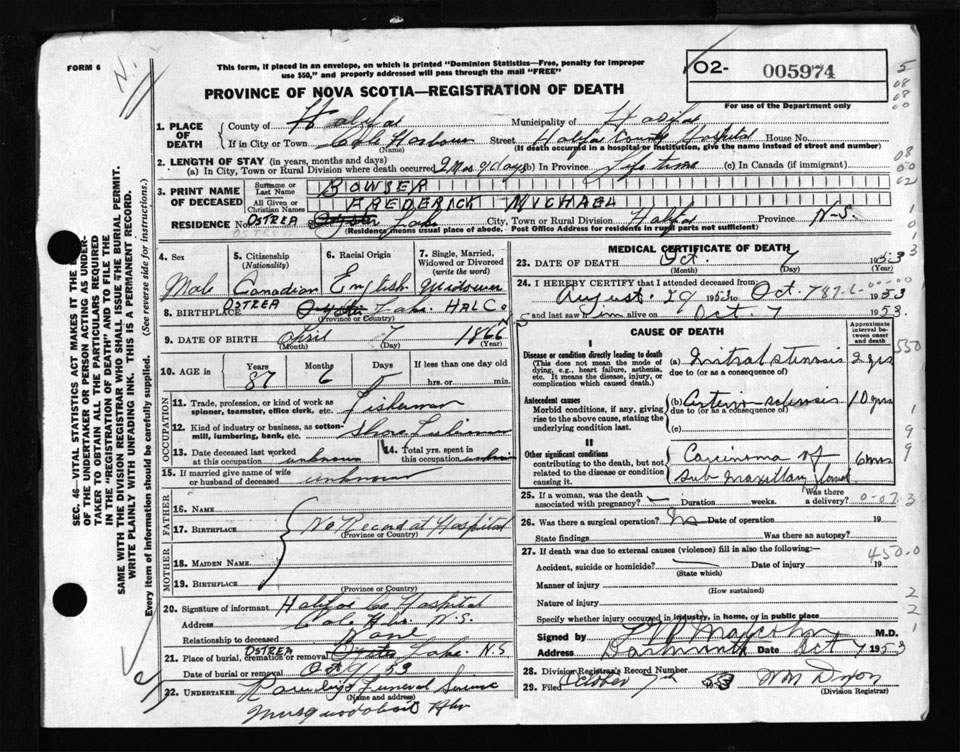 FORM 6
N.
This form, if placed in an envelope, on which is printed "Dominion Statistics—Free, penalty for improper
use $50," and properly addressed will pass through the mail "FREE"
O2- 005974
PROVINCE OF NOVA SCOTIA—REGISTRATION OF DEATH
For use of the Department only
1. PLACE OF DEATH
County of Halifax Municipality of Halifax
If in City or Town Cole Harbour Street Halifax County Hospital House No.
(Name) (If death occurred in a hospital or institution, give the name instead of street and number)
2. LENGTH OF STAY (in years, months and days)
(a) In City, Town or Rural Division where death occurred 2 Mos 9 days (b) In Province Life time (c) In Canada (if immigrant)
3. PRINT NAME OF DECEASED
Surname or Last Name BOWSER
All Given or Christian Names FREDERICK MICHAEL
RESIDENCE No. OSTREA Lake City, Town or Rural Division Halifax Province N-S.
(Residence means usual place of abode. Post Office Address for residents in rural parts not sufficient)
4. Sex
Male
5. Citizenship
(Nationality)
Canadian
6. Racial Origin
English
7. Single, Married, Widowed or Divorced
(write the word)
Widower
8. BIRTHPLACE OSTREA Oyster Lake. HAL Co
(Province or Country)
9. DATE OF BIRTH April 7 1866
(Month) (Day) (Year)
10. AGE in Years Months Days If less than one day old
87 6 hrs. or min.
OCCUPATION
11. Trade, profession, or kind of work as
spinner, teamster, office clerk, etc. Fisherman
12. Kind of industry or business, as cotton-
mill, lumbering, bank, etc. Shore
13. Date deceased last worked
at this occupation unknown
14. Total yrs. spent in
this occupation unknown
15. If married give name of wife
or husband of deceased unknown
FATHER
16. Name
17. Birthplace No Record at Hospital
(Province or Country)
MOTHER
18. Maiden Name
19. Birthplace
(Province or Country)
20. Signature of informant Halifax Co Hospital
Address Cole Hbr. N.S.
Relationship to deceased None
21. Place of burial, cremation or removal OSTREA Oyster Lake. N.S.
Date of burial or removal Oct 9/53
22. UNDERTAKER Funeral Service
(Name and address)
Musquodoboit Hbr
MEDICAL CERTIFICATE OF DEATH
23. DATE OF DEATH Oct. 7 1953
(Month) (Day) (Year)
24. I HEREBY CERTIFY that I attended deceased from:
August. 29 1953 to Oct. 7 1953
and last saw him alive on Oct. 7 1953.
CAUSE OF DEATH
Approximate interval between onset and death
I
Disease or condition directly leading to death
(This does not mean the mode of dying, e.g., heart failure, asthenia, etc. It means the disease, injury, or complication which caused death.)
(a) Mitral stenosis 2 yrs
due to (or as a consequence of)
Antecedent causes
Morbid conditions, if any, giving rise to the above cause, stating the underlying condition last.
(b) Arterio-sclerosis 10 yrs
due to (or as a consequence of)
(c)
II
Other significant conditions
contributing to the death, but not related to the disease or condition causing it.
Carcinoma of 6 mos
Sub maxillary gland
25. If a woman, was the death
associated with pregnancy? — Duration weeks. Was there a delivery?
26. Was there a surgical operation? No Date of operation 19
State findings Was there an autopsy?
27. If death was due to external causes (violence) fill in also the following:—
Accident, suicide or homicide? Date of injury 19
(State which)
Manner of injury
(How sustained)
Nature of injury
Specify whether injury occurred in industry, in home, or in public place
Signed by M.D.
Address Dartmouth Date Oct 7 1953
28. Division Registrar's Record Number
29. Filed October 1953 Wm Dixon
(Division Registrar)
SEC. 46—VITAL STATISTICS ACT MAKES IT THE DUTY
OF THE UNDERTAKER OR PERSON ACTING AS UNDER-
TAKER TO OBTAIN ALL THE PARTICULARS REQUIRED
IN THE "REGISTRATION OF DEATH" AND TO FILE THE
SAME WITH THE DIVISION REGISTRAR WHO SHALL ISSUE THE BURIAL PERMIT.
WRITE PLAINLY WITH UNFADING INK. THIS IS A PERMANENT RECORD.
Every item of information should be carefully supplied. (See reverse side for instructions.)